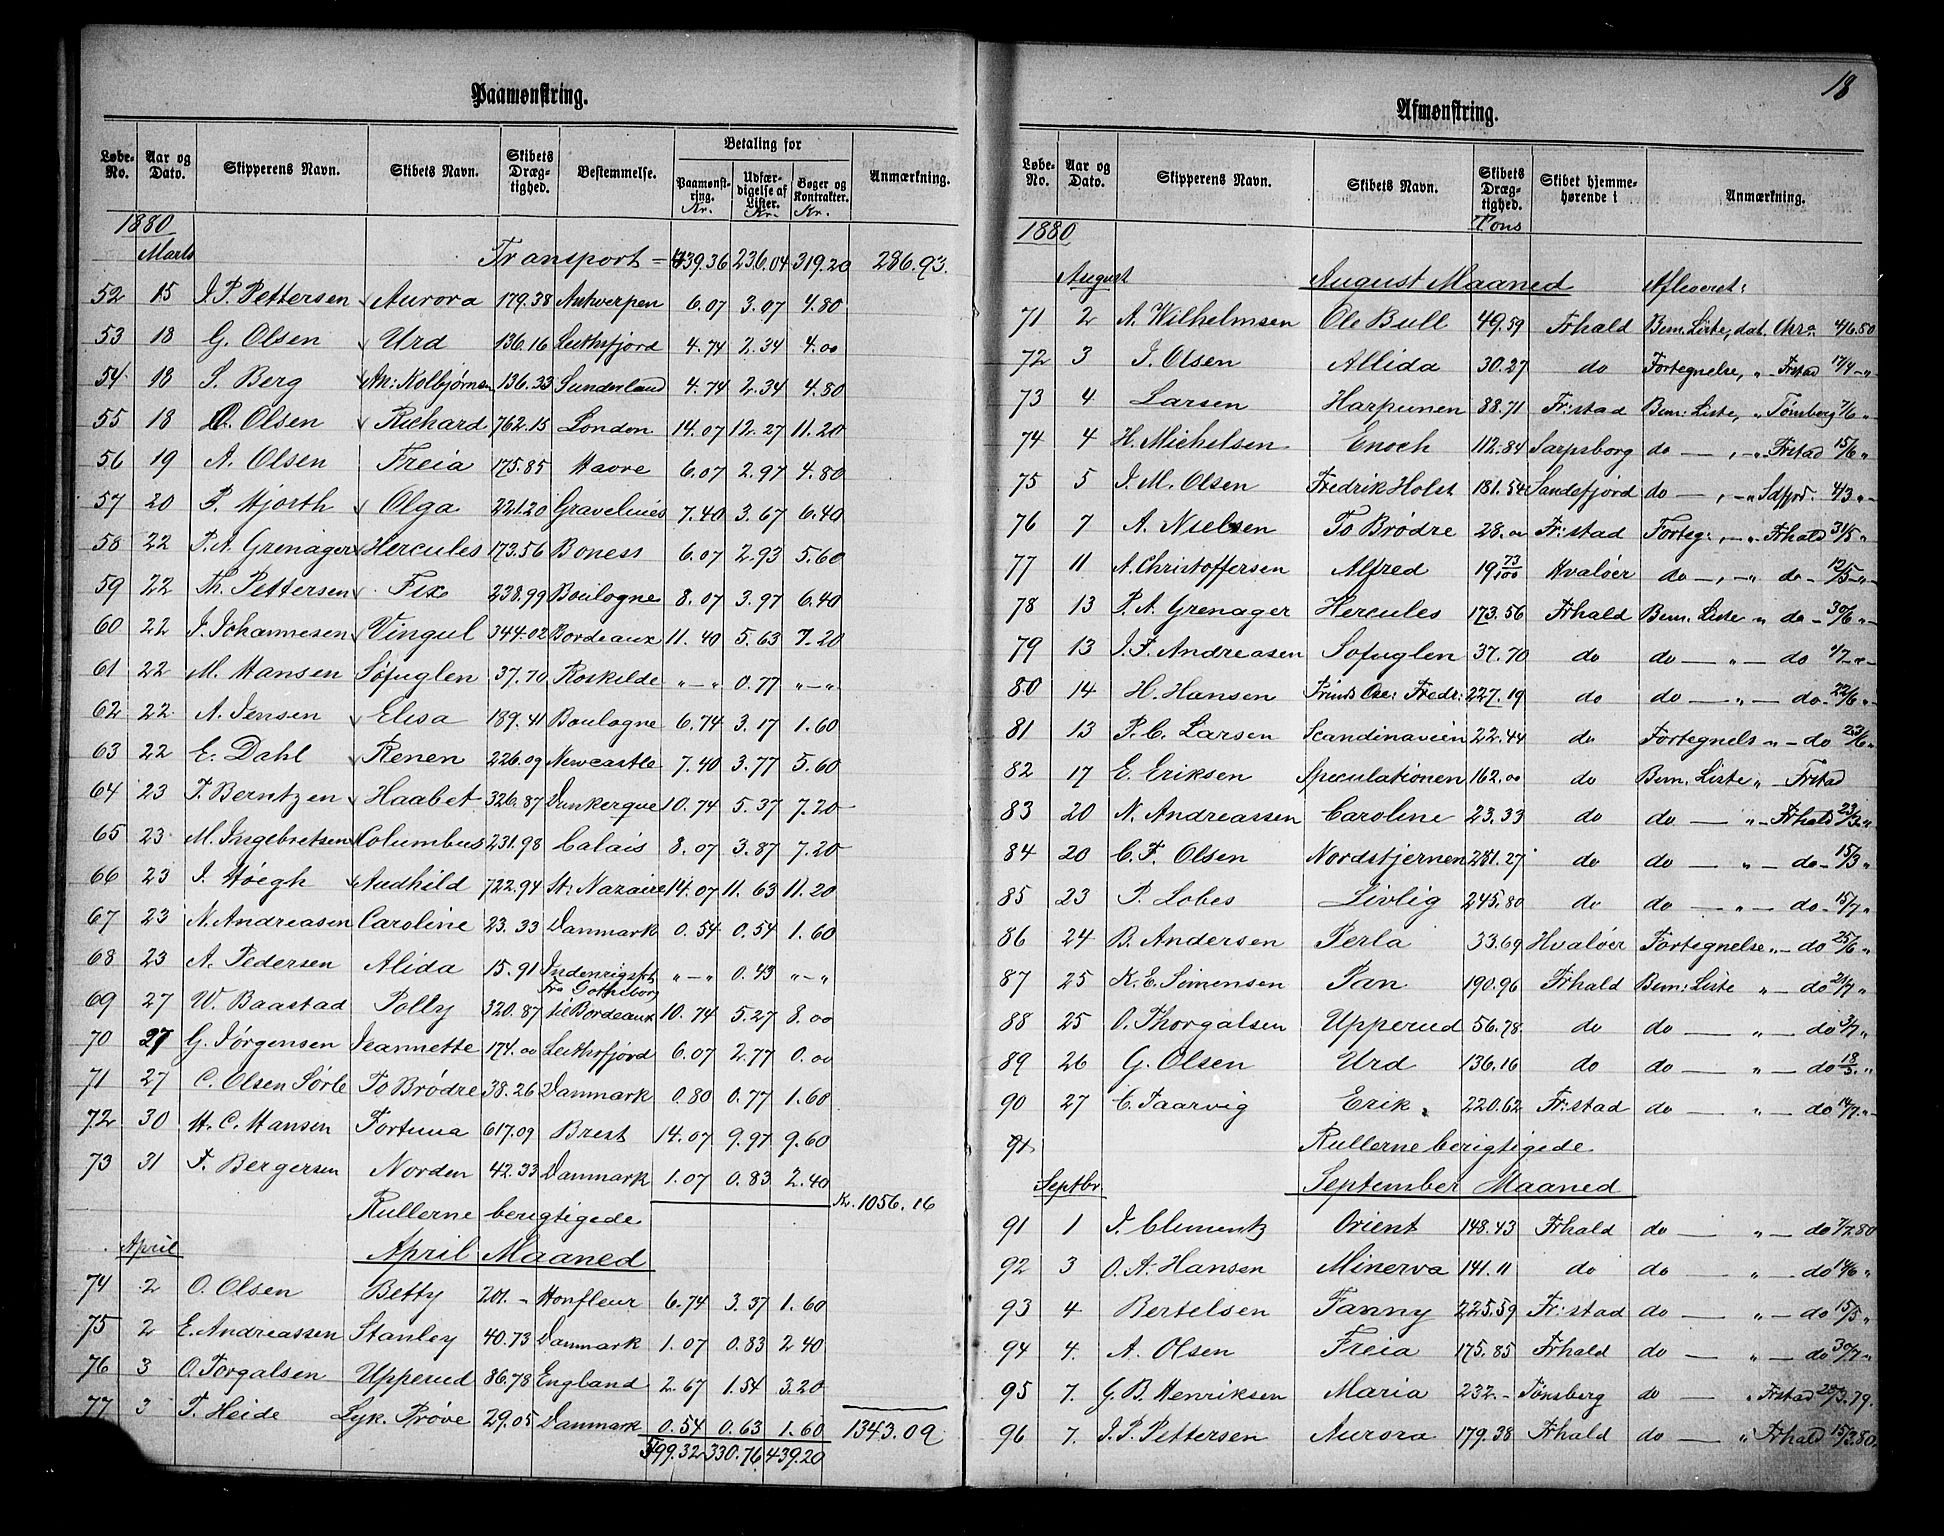 Paamønstring.
Løbe-No. Aar og Dato. Skipperens Navn. Skibets Navn. Skibets Dræg-tighed. Bestemmelse. Betaling for Paamønst-ring. Kr. Udfær-digelse af Lister. Kr. Bøger og Kontrakter. Kr. Anmærkning.
1880
Marts Transport = 439.36 236.04 319.20 286.93.
52 15 J. P. Pettersen Aurora 179.38 Antwerpen 6.07 3.07 4.80
53 18 G. Olsen Urd 136.16 Leithsfjord 4.74 2.34 4.00
54 18 S. Berg An: Kolbjørnsen 136.33 Sunderland 4.74 2.34 4.80
55 18 O. Olsen Richard 762.15 London 14.07 12.27 11.20
56 19 A. Olsen Freia 175.85 Havre 6.07 2.97 4.80
57 20 P. Hjorth Olga 221.20 Gravelines 7.40 3.67 6.40
58 22 P. A. Grenager Hercules 173.56 Boness 6.07 2.93 5.60
59 22 Th. Pettersen Fix 238.99 Boulogne 8.07 3.97 6.40
60 22 J. Johannesen Vingul 344.02 Bordeaux 11.40 5.63 7.20
61 22 M. Hansen Søfuglen 37.70 Roskilde " - " 0.77 " - "
62 22 A. Jensen Elisa 189.41 Boulogne 6.74 3.17 1.60
63 22 E. Dahl Renen 226.09 Newcastle 7.40 3.77 5.60
64 23 F. Berntzen Haabet 326.87 Dunkerque 10.74 5.37 7.20
65 23 M. Ingebretsen Columbus 231.98 Calais 8.07 3.87 7.20
66 23 J. Høegh Audhild 722.94 St: Nazaire 14.07 11.63 11.20
67 23 N. Andreasen Caroline 23.33 Danmark 0.54 0.54 1.60
68 23 A. Pedersen Alida 15.91 Indenrigsfrt. " - " 0.43 " - "
69 27 W. Baastad Polly 320.87 Fra Gotheborg til Bordeaux 10.74 5.27 8.00
70 27 G. Jørgensen Jeannette 174.00 Leithsfjord 6.07 2.77 0.00
71 27 C. Olsen Sørle To Brødre 38.26 Danmark 0.80 0.77 1.60
72 30 H. C. Hansen Fortuna 617.09 Brest 14.07 9.97 9.60
73 31 F. Bergersen Norden 42.33 Danmark 1.07 0.83 2.40
Kr. 1056.16
Rullerne berigtigede
April April Maaned
74 2 O. Olsen Betty 201.- Honfleur 6.74 3.37 1.60
75 2 E. Andreassen Stanley 40.73 Danmark 1.07 0.83 2.40
76 3 O. Torgalsen Upperud 86.78 England 2.67 1.54 3.20
77 3 T. Heide Lyk. Prøve 29.05 Danmark 0.54 0.63 1.60 1343.09
599.32 330.76 439.20
18
Afmønstring.
Løbe-No. Aar og Dato. Skipperens Navn. Skibets Navn. Skibets Dræg-tighed. Tons Skibet hjemme-hørende i Anmærkning.
1880
August August Maaned Afleveret:
71 2 A. Wilhelmsen Ole Bull 49.59 Frhald Bem. Liste, dat. Chra. 4/6.80
72 3 J. Olsen Allida 30.27 do Fortegnelse, " Frstad 17/4 - "
73 4 Larsen Harpunen 88.71 Fr:stad Bem: Liste, " Tønsberg 7/6 "
74 4 H. Michelsen Enoch 112.84 Sarpsborg do — , - " Frstad 15/6 "
75 5 J. M. Olsen Fredrik Holst 181.54 Sandefjord do — , - " Sdfjrd. 4/3 "
76 7 A. Nielsen To Brødre 28.00 Fr:stad Forteg: , - " Frhald 31/5 "
77 11 A. Christoffersen Alfred 19 73/100 Hvaløer do - , - " do - 12/5 - "
78 13 P. A. Grenager Hercules 173.56 Frhald Bem. Liste " do - 30/6 "
79 13 J. F. Andreasen Sofuglen 37.70 do do — " — do 4/7 - "
80 14 H. Hansen Prinds Osc: Fredr: 227.19 do do — " — do 22/6 "
81 13 P. C. Larsen Scandinavien 22.44 do Fortegnels " - do 23/6 "
82 17 E. Eriksen Speculationen 162.00 do Bem. Liste " - Frstad
83 20 N. Andreassen Caroline 23.33 do do — " - Frhald 23/3 "
84 20 C. F. Olsen Nordstjernen 251.27 do do — " — do - 15/3 "
85 23 P. Lobes Livlig 245.80 do do — " — do - 15/7 "
86 24 B. Andersen Perla 33.69 Hvaløer Fortegnelse " - do 25/6 "
87 25 K. E. Simensen Pan 190.96 Frhald Bem: Liste " — do 21/7 "
88 25 O. Thorgalsen Upperud 56.78 do do — " — do 3/7 "
89 26 G. Olsen Urd 136.16 do do — " — do 18/3 "
90 27 C. Taarvig Erik 220.62 Fr:stad do — " — do 14/7 "
91 Rullerne berigtigede
Septbr. September Maaned
91 1 J. Clementz Orient 148.43 Frhald do — " — do 7/7 80
92 3 O. A. Hansen Minerva 141.11 do do — " — do 14/6 "
93 4 Bertelsen Fanny 225.59 Fr:stad do — " — do 15/5 "
94 4. A. Olsen Freia 175.85 Frhald do — " — do 30/7 "
95 7. G. B. Henriksen Maria 232.- Tønsberg do — " Frstad 29/3 79.
96 7. J. P. Pettersen Aurora 179.38 Frhald do — " Frhald 15/3 80.